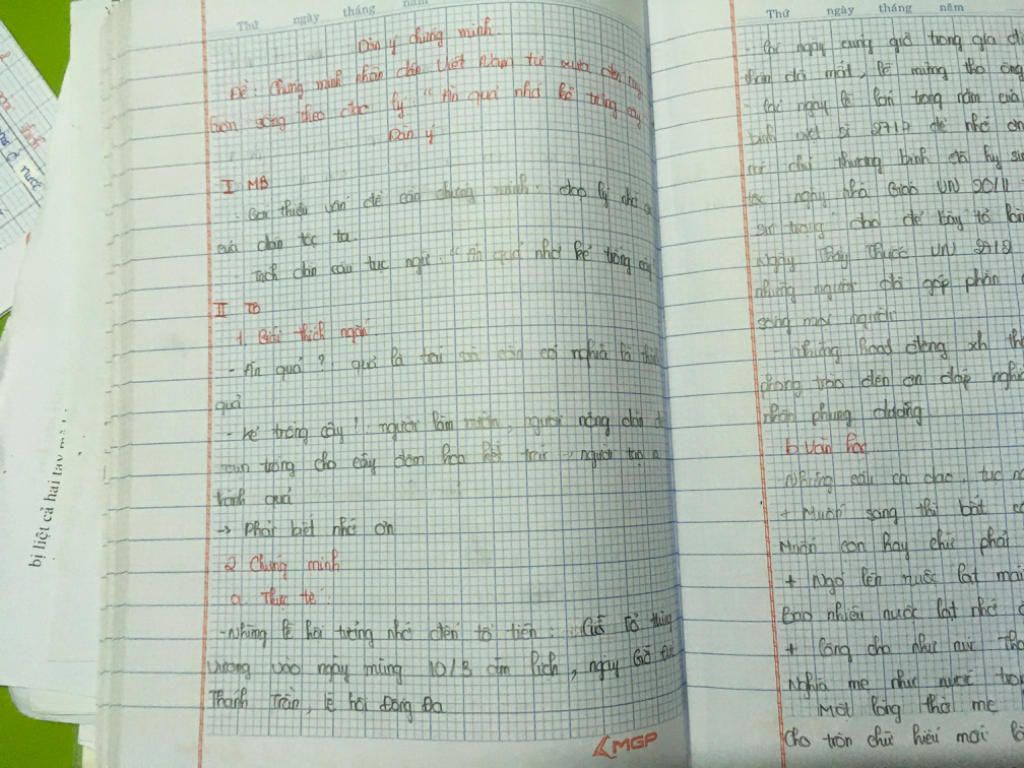 Thứ ngày tháng năm
Dàn ý chứng minh
Đề: Chứng minh nhân dân Việt Nam từ xưa đến nay
luôn sống theo đạo lý "Ăn quả nhớ kẻ trồng cây
Dàn ý
I MB
- Giới thiệu vấn đề cần chứng minh: đạo lý
của dân tộc ta
- Trích dẫn câu tục ngữ: "Ăn quả nhớ kẻ trồng cây
II TB
1. Giải thích ngắn
- Ăn quả?: quả là trái có nghĩa là
quả
- kẻ trồng cây?: người làm, người nông dân
trồng cho cây đơm hoa kết trái → người tạo
thành quả
→ Phải biết nhớ ơn
2 Chứng minh
a. Thực tế:
- Những lễ hội tưởng nhớ đến tổ tiên: Giỗ Tổ Hùng
Vương vào ngày mùng 10/3 âm lịch, ngày Giỗ Đức
Thánh Trần, lễ hội Đống Đa
MGP
Thứ ngày tháng năm
- Các ngày cúng giỗ trong gia
thân đã mất, lễ mừng thọ ông
- Các ngày lễ lớn trong năm của
binh liệt sĩ 27/7 để nhớ ơn
chí thương binh đã hy sinh
ngày nhà Giáo VN 20/11
để bày tỏ
Ngày Thầy Thuốc VN 27/2
những người đã góp phần
sống mọi người
- Những hoạt động xh
phong trào đền ơn đáp nghĩa
nhận phụng dưỡng
b Văn học
Những câu ca dao, tục ngữ
+ Muốn sang thì bắt
Muốn con hay chữ phải
+ Ngó lên nuột lạt mái
Bao nhiêu nuột lạt nhớ
+ Công cha như núi
Nghĩa mẹ như nước trong
Một lòng thờ mẹ
Cho tròn chữ hiếu mới
bị liệt cả hai tay mà